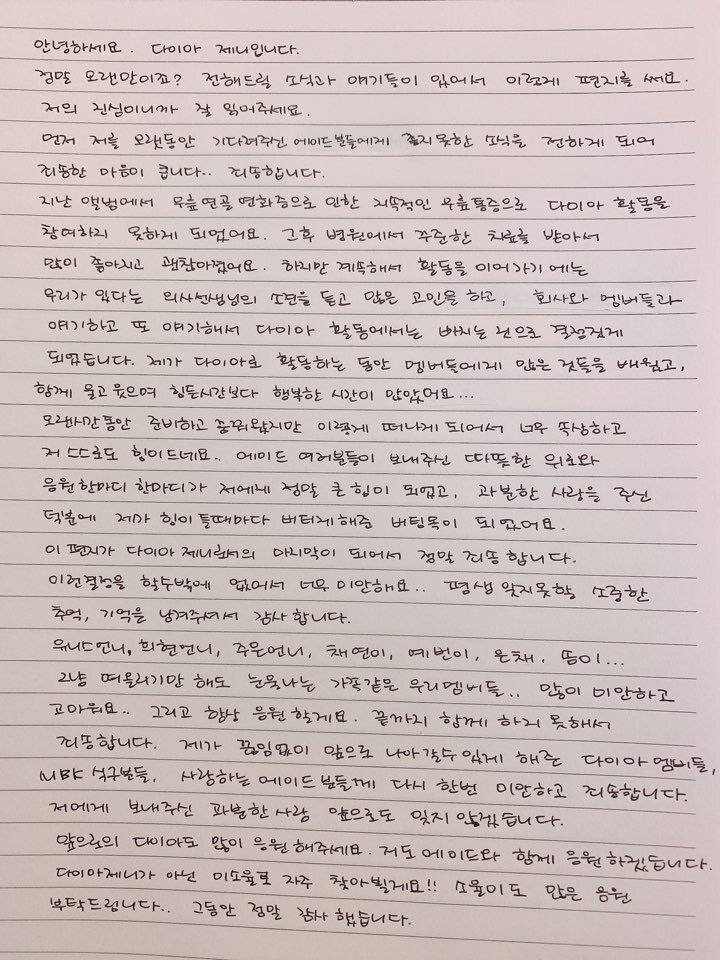 안녕하세요. 다이아 제니입니다.
정말 오랜만이죠? 전해드릴 소식과 얘기들이 있어서 이렇게 편지를 써요.
저의 진심이니까 잘 읽어주세요.
먼저 저를 오랫동안 기다려주신 에이드분들에게 좋지못한 소식을 전하게 되어
죄송한 마음이 큽니다.. 죄송합니다.
지난 앨범에서 무릎연골 연화증으로 인한 지속적인 무릎통증으로 다이아 활동을
참여하지 못하게 되었어요. 그후 병원에서 꾸준한 치료를 받아서
많이 좋아지고 괜찮아졌어요. 하지만 계속해서 활동을 이어가기 에는
무리가 있다는 의사선생님의 소견을 듣고 많은 고민을 하고, 회사와 멤버들과
얘기하고 또 얘기해서 다이아 활동에서는 빠지는 것으로 결정짓게
되었습니다. 제가 다이아로 활동하는 동안 멤버들에게 많은 것들을 배웠고,
함께 울고 웃으며 힘든시간보다 행복한 시간이 많았어요...
오랜시간동안 준비하고 꿈꿔왔지만 이렇게 떠나게 되어서 너무 속상하고
저 스스로도 힘이드네요.. 에이드 여러분들이 보내주신 따뜻한 위로와
응원한마디 한마디가 저에게 정말 큰 힘이 되었고, 과분한 사랑을 주신
덕분에 제가 힘이 들때마다 버티게 해준 버팀목이 되었어요.
이 편지가 다이아 제니로서의 마지막이 되어서 정말 죄송 합니다.
이런결정을 할수밖에 없어서 너무 미안해요.. 평생 잊지못할 소중한
추억, 기억을 남겨주셔서 감사 합니다.
유니스언니, 희현언니, 주은언니, 채연이, 예빈이, 은채, 쏨이...
그냥 떠올리기만 해도 눈물나는 가족같은 우리멤버들.. 많이 미안하고
고마워요.. 그리고 항상 응원 할게요. 끝까지 함께 하지 못해서
죄송합니다. 제가 끊임없이 앞으로 나아갈수 있게 해준 다이아 멤버들,
MBK 식구분들, 사랑하는 에이드 분들께 다시 한번 미안하고 죄송합니다.
저에게 보내주신 과분한 사랑 앞으로도 잊지 않겠습니다.
앞으로의 다이아도 많이 응원 해주세요. 저도 에이드와 함께 응원 하겠습니다.
다이아제니가 아닌 이소율로 자주 찾아뵐게요!! 소율이도 많은 응원
부탁드립니다.. 그동안 정말 감사 했습니다.